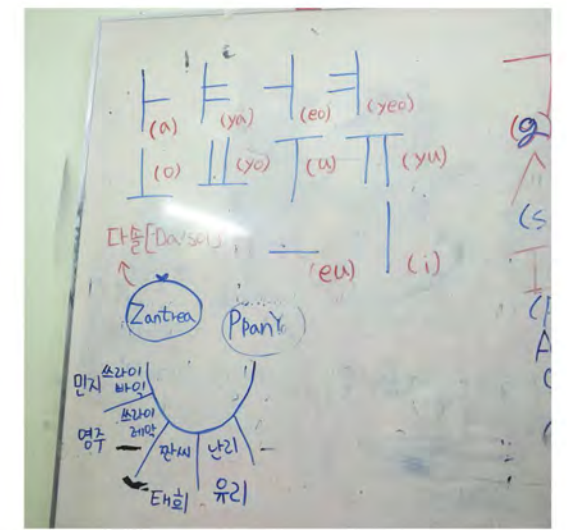 ㅏ (a) ㅑ (ya) ㅓ (eo) ㅕ (yeo)
ㅗ (o) ㅛ (yo) ㅜ (u) ㅠ (yu)
다솔[Da'sol] ㅡ (eu) ㅣ (i)
Zantrea
민지 쓰라이
바익
쓰라이
영주
짠씨 난리
태희 유리
(g)
(s